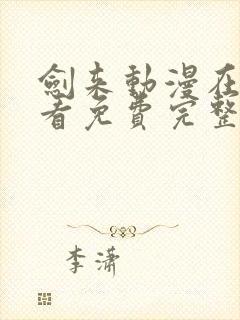 劍来動漫在
看免費完整
李瀟